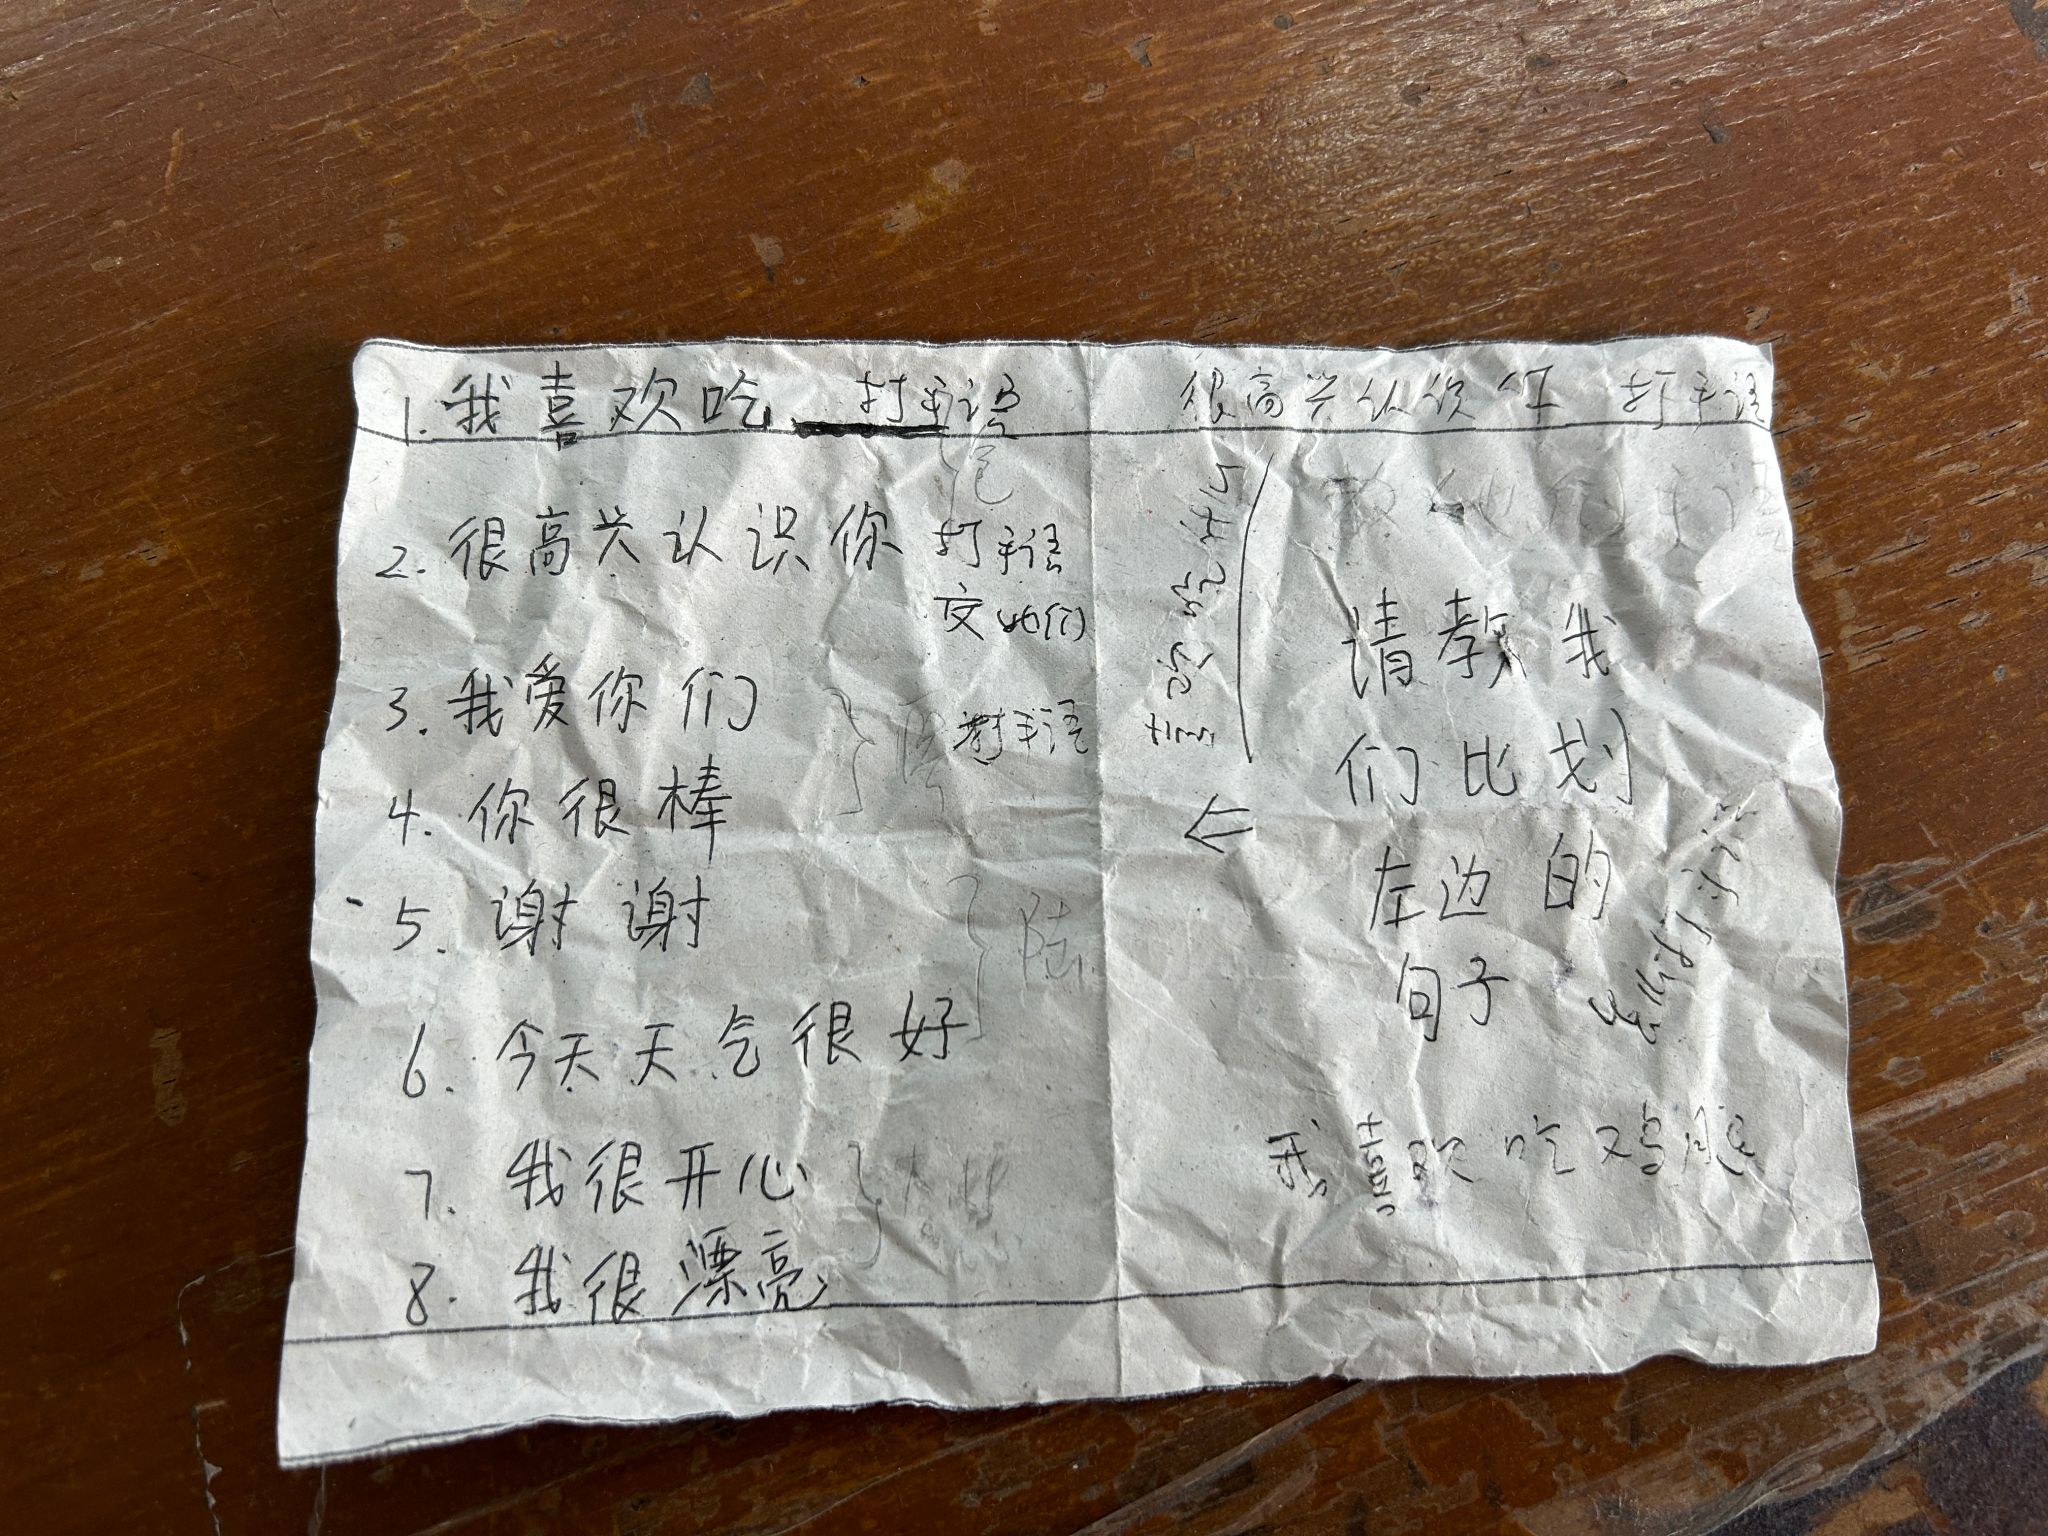 1. 我喜欢吃 打手语
2. 很高兴认识你 打手语
交她们
3. 我爱你们 打手语
4. 你很棒
5. 谢谢
陆
6. 今天天气很好
7. 我很开心
8. 我很漂亮
很高兴认识你 打手语
请教我
们比划
左边的
句子
我喜欢吃鸡腿